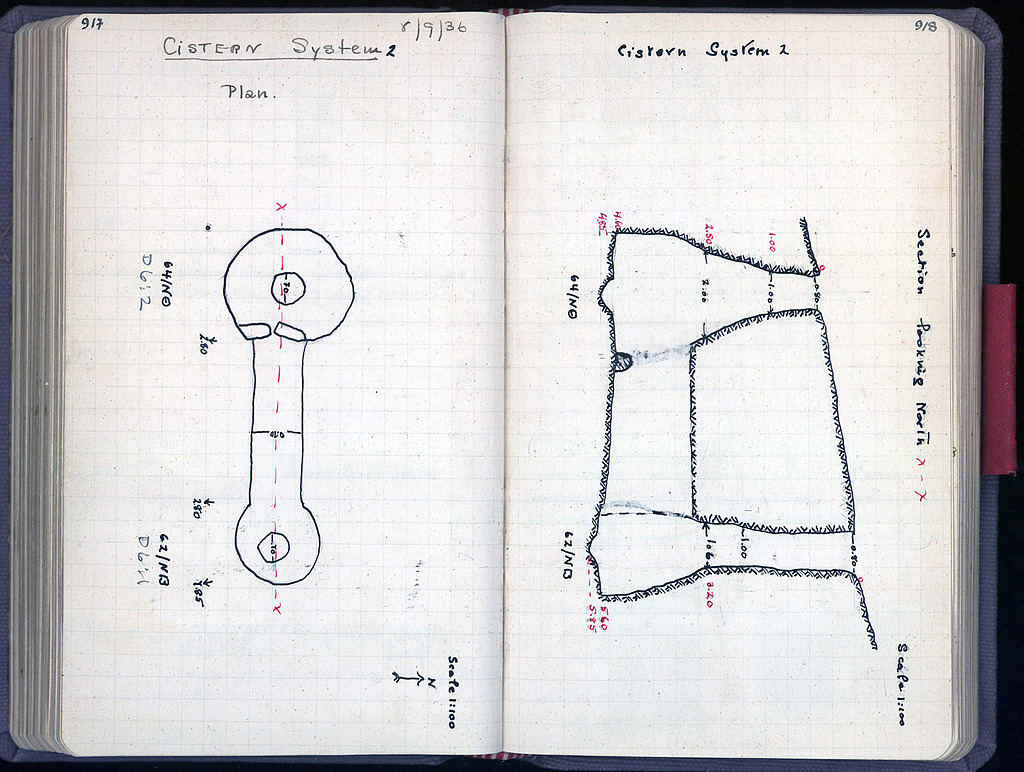 917
8/9/36
Cistern System 2
Plan.
X
.70
64/N⊖
D6:2
2.80
.70
62/NB
D6:1
1.85
X
N
Scale 1:100
918
Cistern System 2
Section Looking North X - X
4.85
4.60
2.50
1.00
0
2.00
1.00
0.80
64/N⊖
62/NB
1.00
0.80
0
3.20
5.60
5.85
Scale 1:100